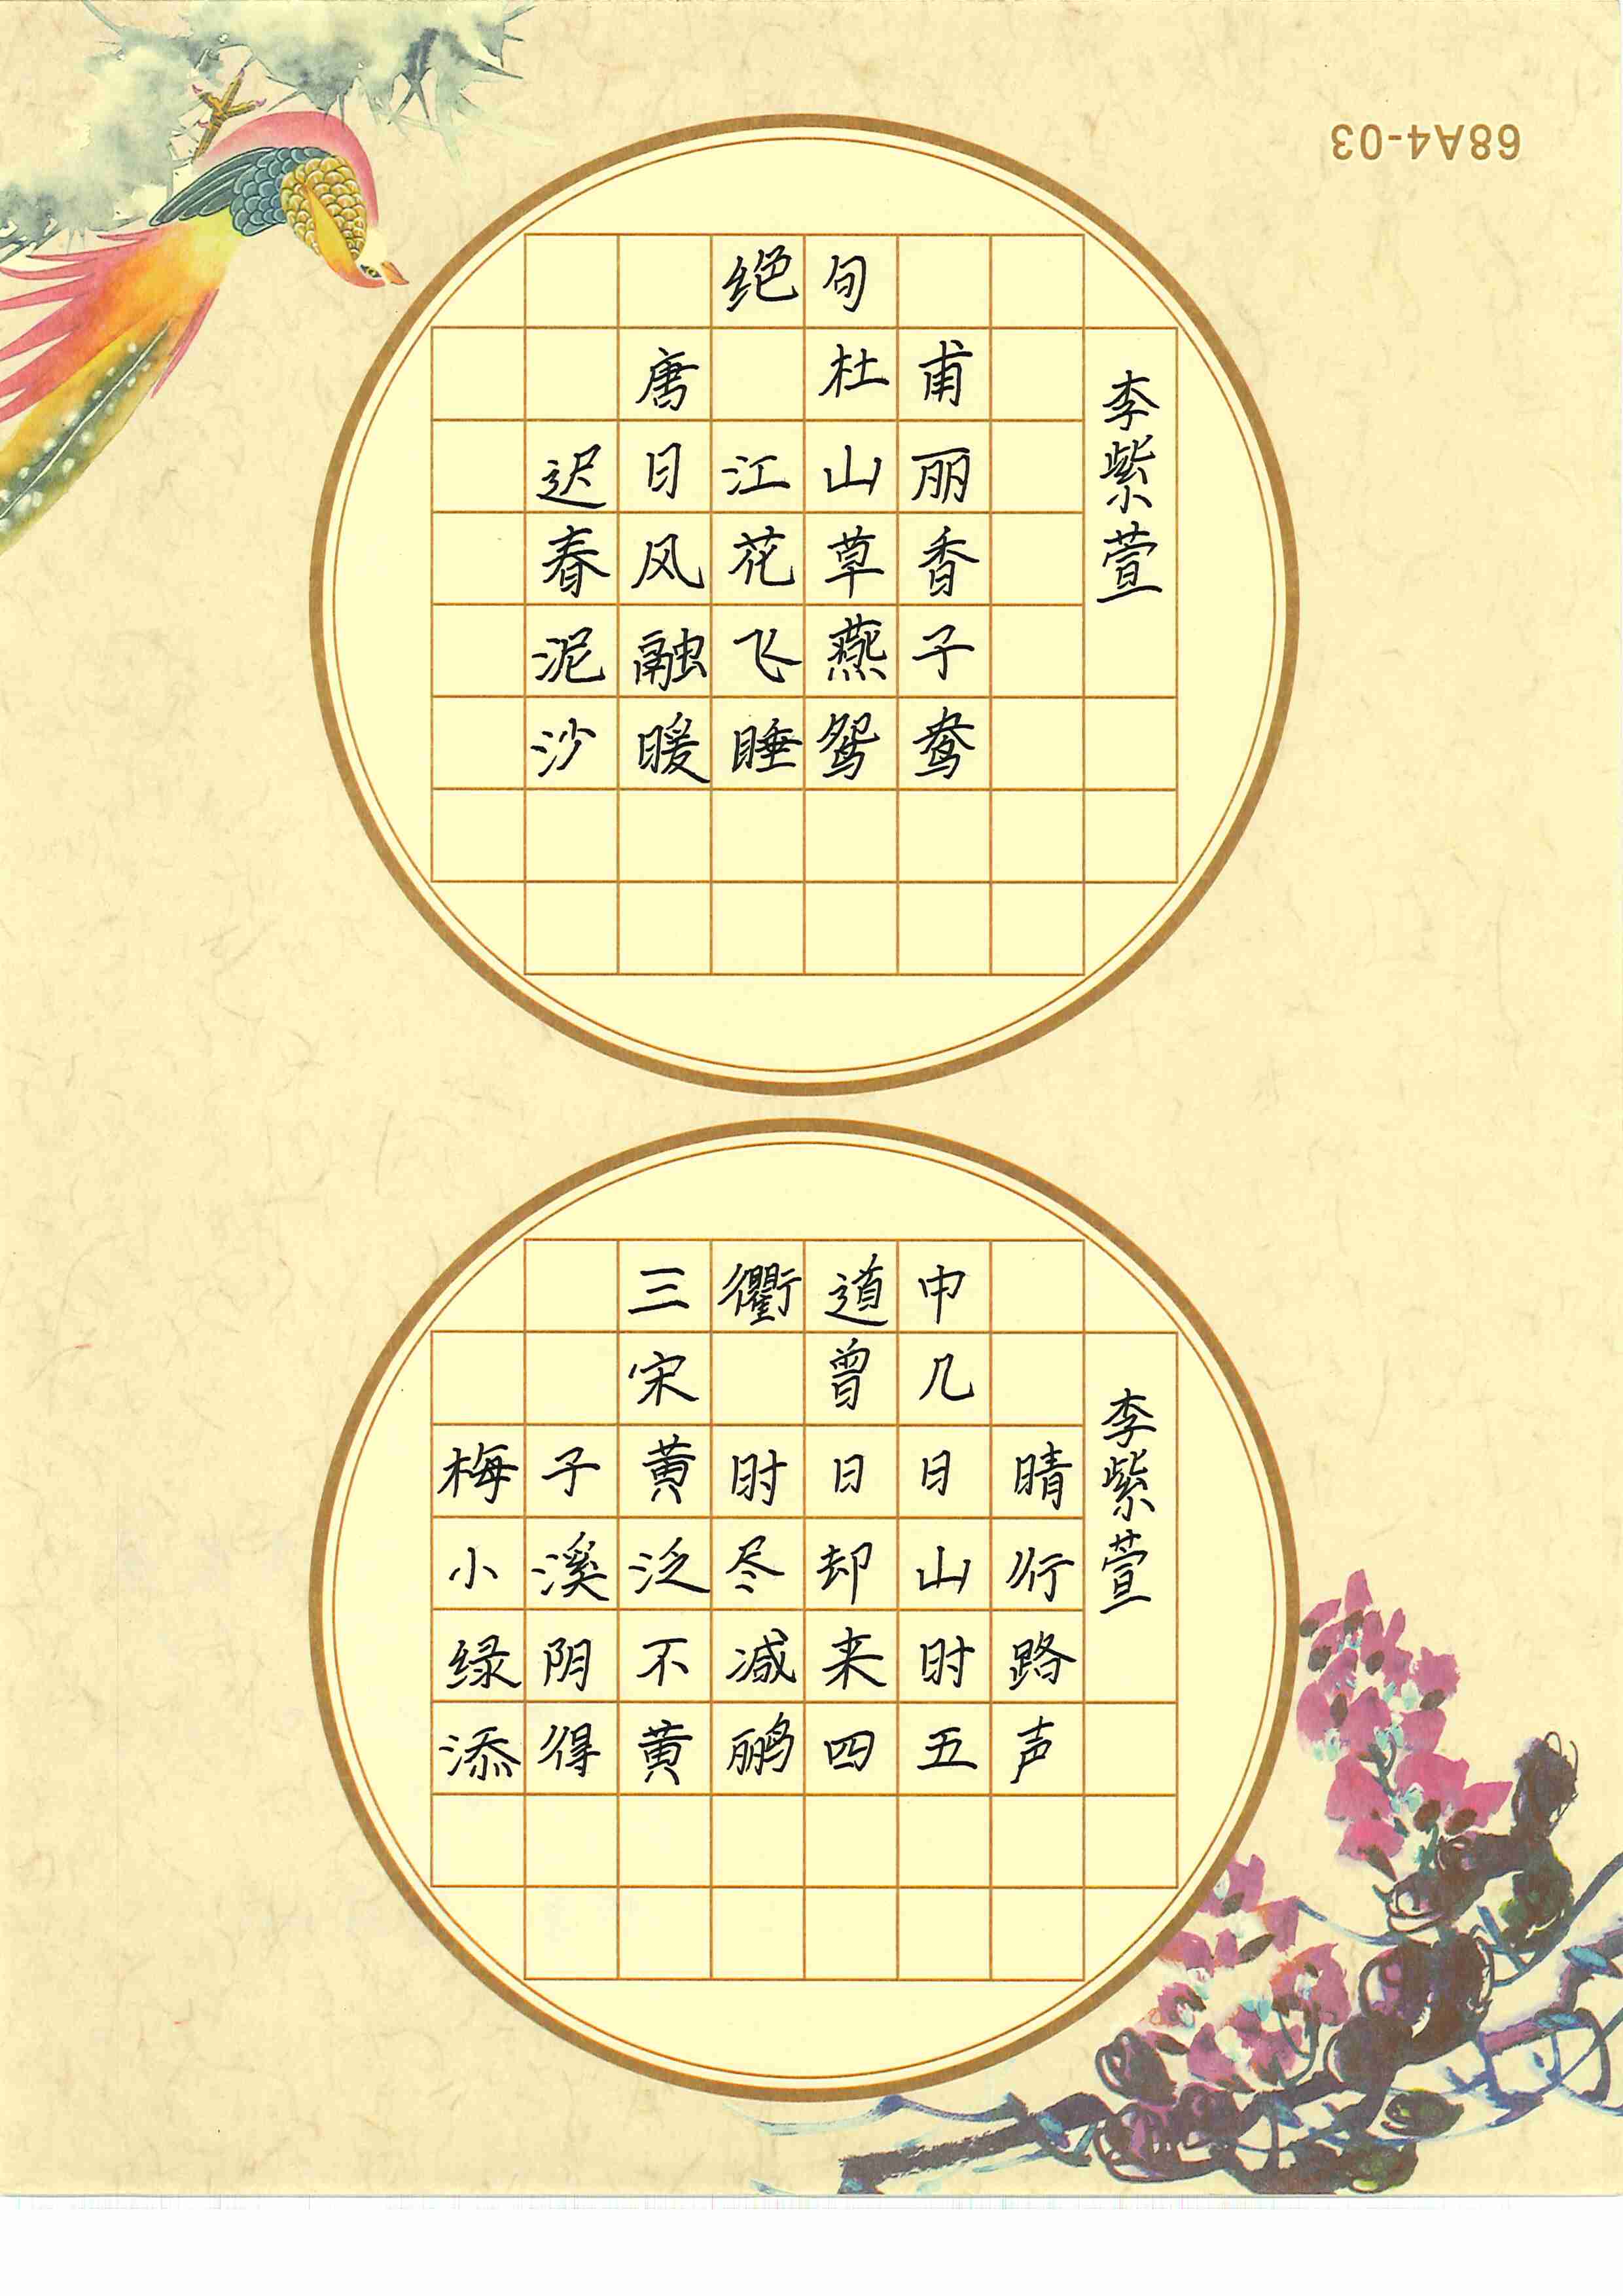 68A4-03
绝句
唐 杜甫
迟日江山丽
春风花草香
泥融飞燕子
沙暖睡鸳鸯
李紫萱
三衢道中
宋 曾几
梅子黄时日日晴
小溪泛尽却山行
绿阴不减来时路
添得黄鹂四五声
李紫萱